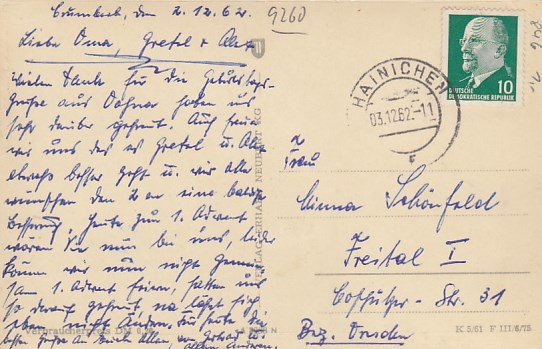 Crumbach, den 2.12.62.
9260
Liebe Oma, Gretel + Alex
Vielen Dank für die Geburtstags-
grüße aus Döhna haben uns
sehr darüber gefreut. Auch freuen
wir uns das es Gretel u. Alex
etwas besser geht u. wir alle
wünschen den 2en eine baldige
Besserung. Heute zum 1. Advent
wären Sie nun bei uns, leider
können wir nun nicht gemeinsam
1. Advent feiern, hatten uns
so darauf gefreut, na läßt sich
eben nicht ändern. Für heute die
besten Grüße an Euch Alle, von
allen anderen.
Verbraucherpreis DM
VERLAG ERHARD NEUBERT KG
HAINICHEN
03.12.62.-11
r
DEUTSCHE
DEMOKRATISCHE REPUBLIK
10
Frau
Minna Schönfeld
Freital I
Coschützer-Str. 31
Bez. Dresden
K 3/61 F III/6/75